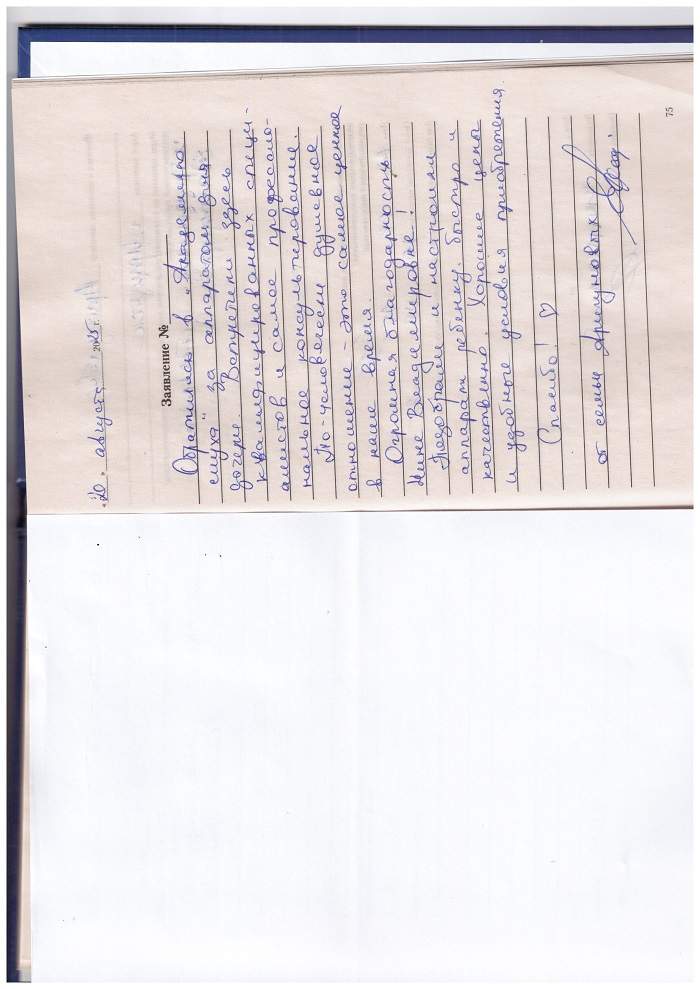 "20" августа 2025 г.
Заявление №
Обратились в "Академию
слуха" за аппаратом для
дочери. Встретили здесь
квалифицированных специ-
алистов и самое професcио-
нальное консультирование.
По-человечески душевное
отношение - это самое ценное
в наше время.
Огромная благодарность
Нине Владимировне!
Подобрали и настроили
аппарат ребенку быстро и
качественно. Хорошие цены
и удобные условия приобретения.
Спасибо! ♡
от семьи
75